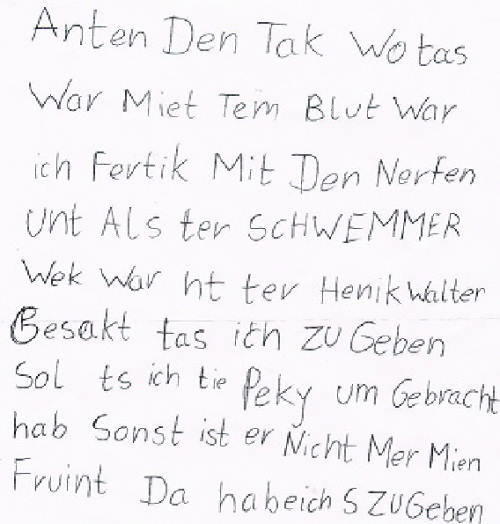 Anten Den Tak Wo tas
War Miet Tem Blut War
ich Fertik Mit Den Nerfen
Unt Als ter SCHWEMMER
Wek War ht ter Henik Walter
Gesakt tas ich ZU Geben
Sol ts ich tie Peky um Gebracht
hab Sonst ist er Nicht Mer Mien
Fruint Da habeich S ZUGeben